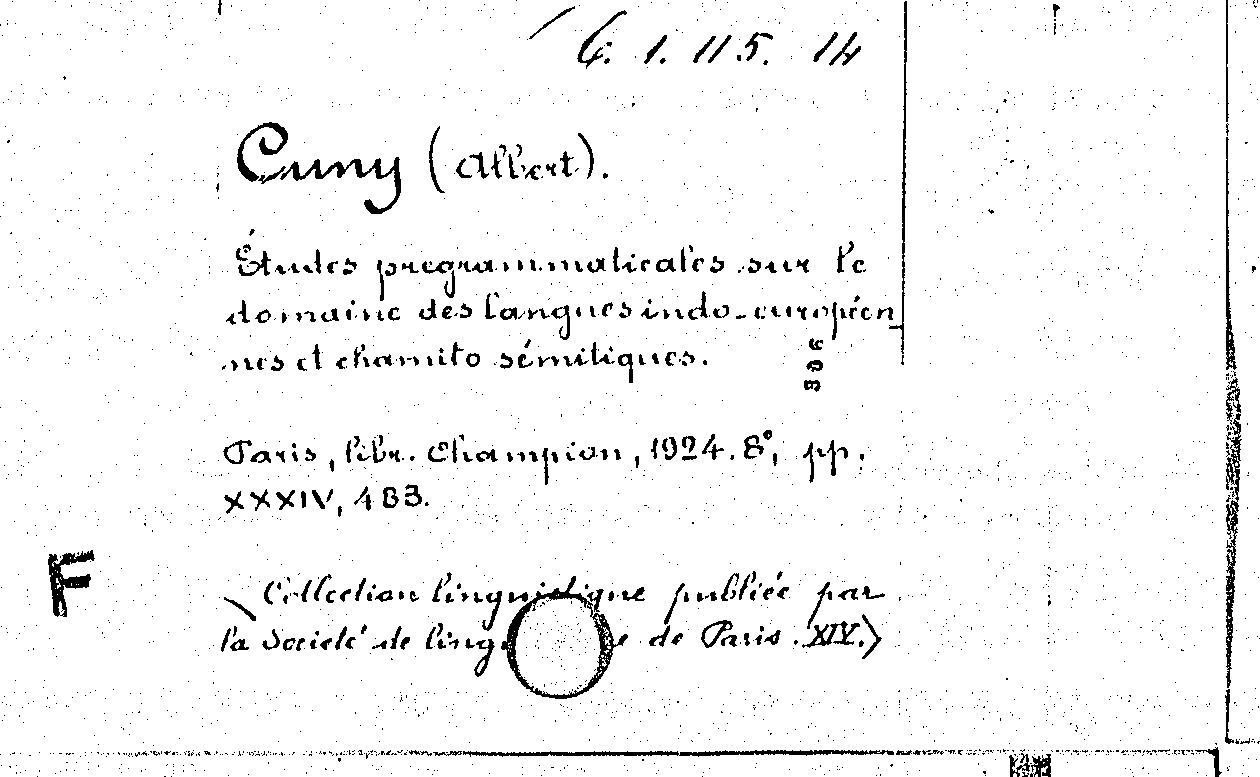 6. 1. 115. 14
Cuny (Albert).
Études pregrammaticales sur le
domaine des langues indo-européen
nes et chamito sémitiques.
396
Paris, libr. Champion, 1924. 8°, pp.
XXXIV, 483.
F
Collection linguistique publiée par
la Societé de de Paris. XIV.>